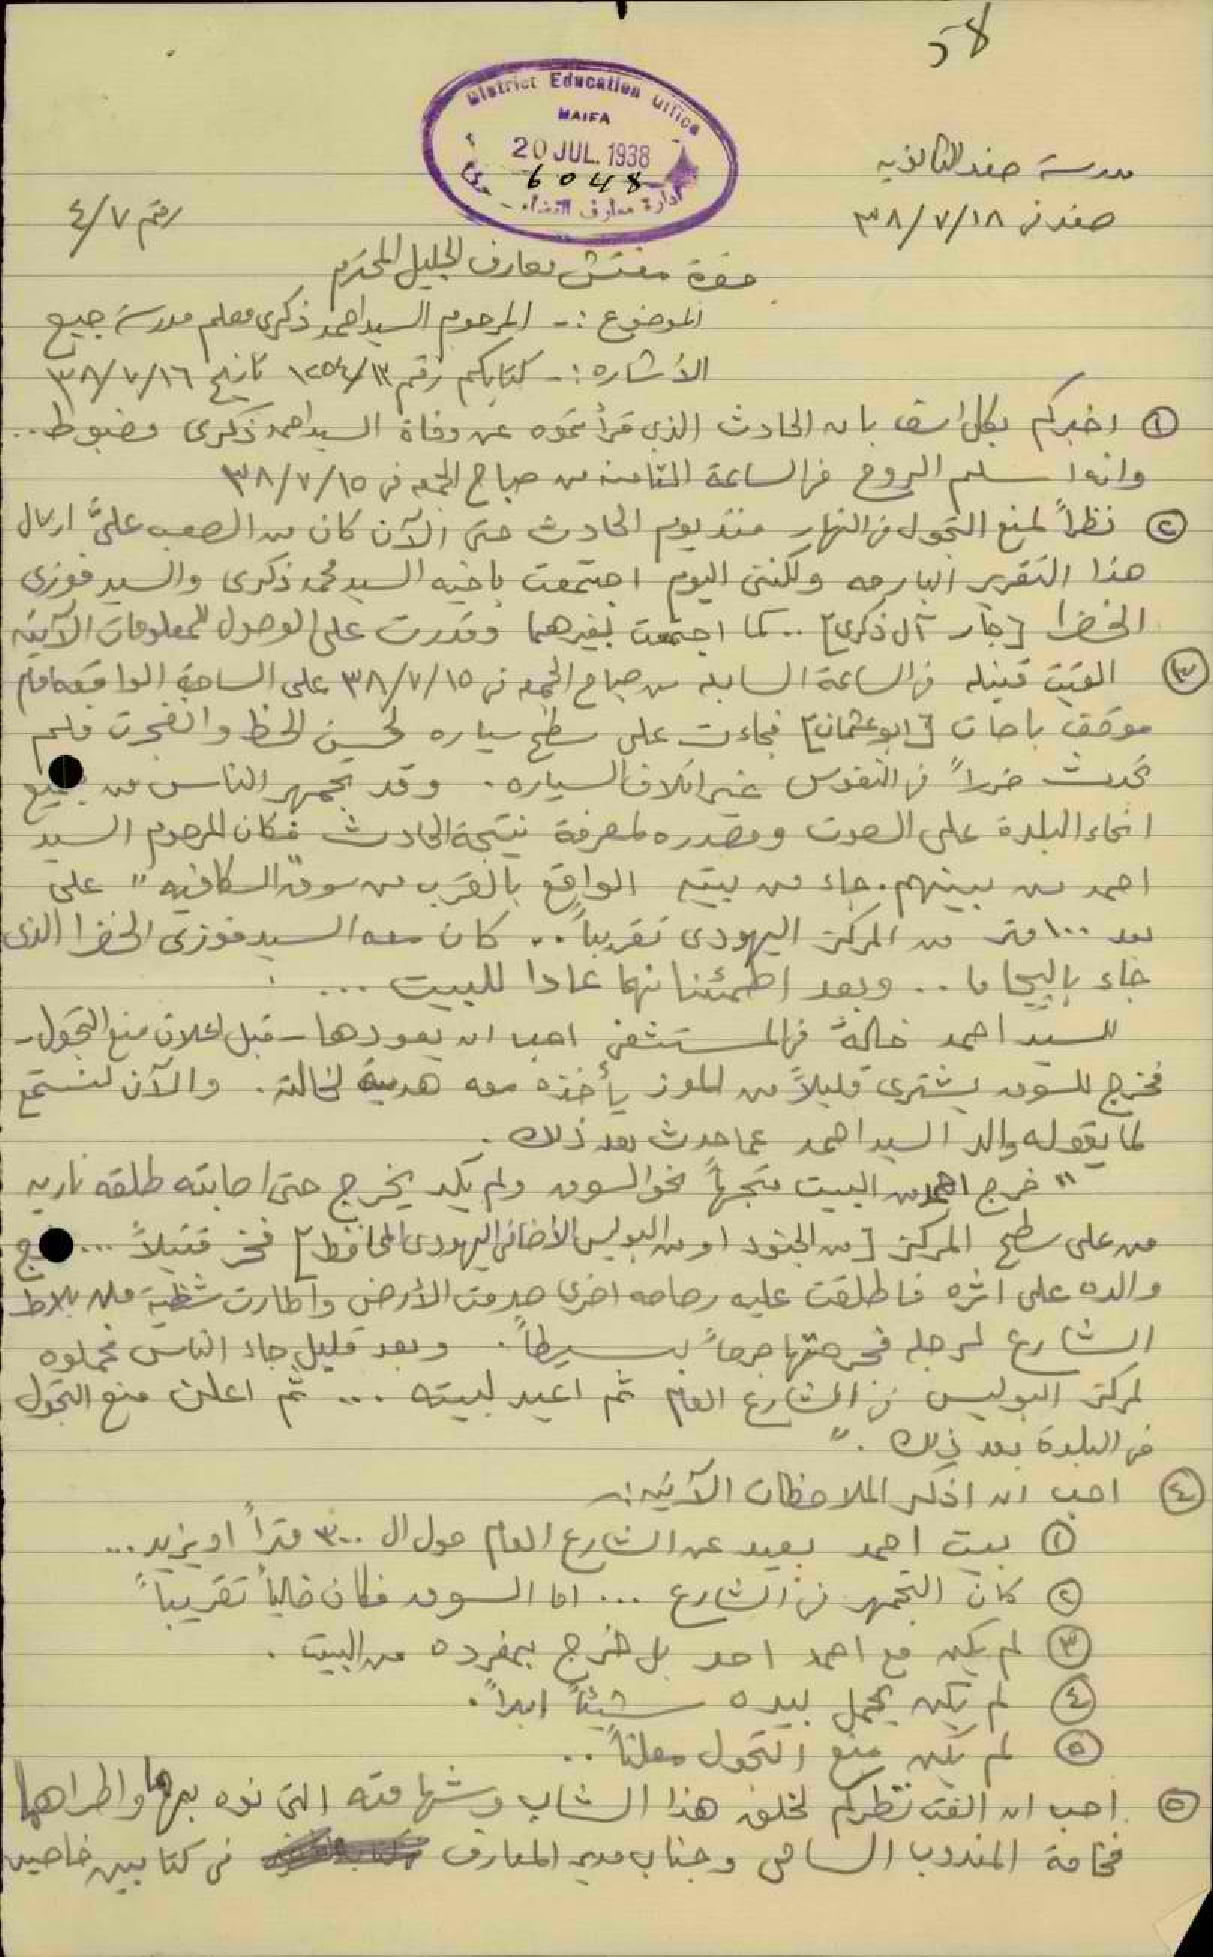 58
District Education Office
HAIFA
20 JUL. 1938
6048
ادارة معارف القضاء
مدرسة صفد الثانويه
صفد في ٣٨/٧/١٨
رقم ٤/٧
حضرة مفتش معارف الجليل المحترم
الموضوع :- المرحوم السيد احمد ذكرى معلم مدرسة جيع
الأشاره :- كتابكم رقم تاريخ ٣٨/٧/١٦
١ اخبركم بكل اسف بان الحادث الذي قرأتموه عن وفاة السيد احمد ذكرى مضبوط..
وانه اسلم الروح في الساعة الثامنة من صباح الجمعه في ٣٨/٧/١٥
٢ نظراً لمنع التجول في النهار منذ يوم الحادث حتى الآن كان من الصعب عليَّ ارسال
هذا التقرير البارحه ولكنني اليوم اجتمعت باخيه السيد محمد ذكرى والسيد فوزى
الخضرا [جار آل ذكرى] .. كما اجتمعت بغيرهما وقدرت على الوصول للمعلومات الآتية
٣ القيت قنبله في الساعة السابعه من صباح الجمعه في ٣٨/٧/١٥ على الساحة الواقعه امام
موقف باصات [ابو عثمان] فجاءت على سطح سياره لحسن الحظ وانفجرت فلم
تحدث ضرراً في النفوس غير اتلاف السياره. وقد تجمهر الناس من جميع
انحاء البلدة على الصوت ومصدره لمعرفة نتيجة الحادث فكان المرحوم السيد
احمد من بينهم. جاء من بيته الواقع بالقرب من سوق "السكافيه" على
بعد ١٠٠ متر من المركز اليهودى تقريباً.. كان معه السيد فوزى الخضرا الذى
جاء بالبيجاما .. وبعد اطمئنانهما عادا للبيت ...
للسيد احمد خالة في المستشفى احب ان يعودها - قبل اعلان منع التجول -
فخرج للسوق يشترى قليلاً من الموز يأخذه معه هدية لخالته. والآن لنستمع
لما يقوله والد السيد احمد عما حدث بعد ذلك.
"خرج احمد من البيت متجهاً نحو السوق ولم يكد يخرج حتى اصابته طلقه ناريه
من على سطح المركز [من الجنود او من البوليس الأضافى اليهودى المحافظ] فخر قتيلاً ... وخرج
والده على اثره فاطلقت عليه رصاصه اخرى صدمت الأرض واطارت شظية من بلاط
الشارع لرجله فجرحتها جرحاً بسيطاً. وبعد قليل جاء الناس فحملوه
لمركز البوليس في الشارع العام ثم اعيد لبيته ... ثم اعلن منع التجول
في البلدة بعد ذلك."
٤ احب ان اذكر الملاحظات الآتية:-
١ بيت احمد بعيد عن الشارع العام حول ال ٣٠٠ متراً او يزيد...
٢ كان التجمهر في الشارع ... اما السوق فكان خالياً تقريباً
٣ لم يكن مع احمد احد بل خرج بمفرده من البيت.
٤ لم يكن يحمل بيده شيئاً ابداً.
٥ لم يكن منع التجول معلناً ..
٥ احب ان الفت نظركم لخلق هذا الشاب وشهامته التي نوه بهما واطراهما
فخامة المندوب السامى وجناب مدير المعارف في كتابين خاصين